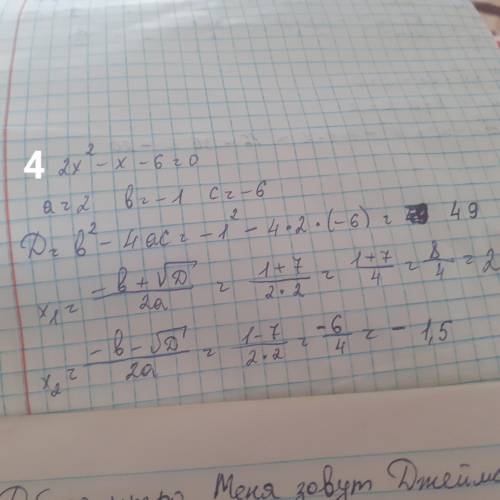 4 2x² - x - 6 = 0
a = 2 в = -1 c = -6
D = в² - 4ac = -1² - 4·2·(-6) = 49
x₁ = (-в + √D)/(2a) = (1+7)/(2·2) = (1+7)/4 = 8/4 = 2
x₂ = (-в - √D)/(2a) = (1-7)/(2·2) = -6/4 = -1,5
Меня зовут